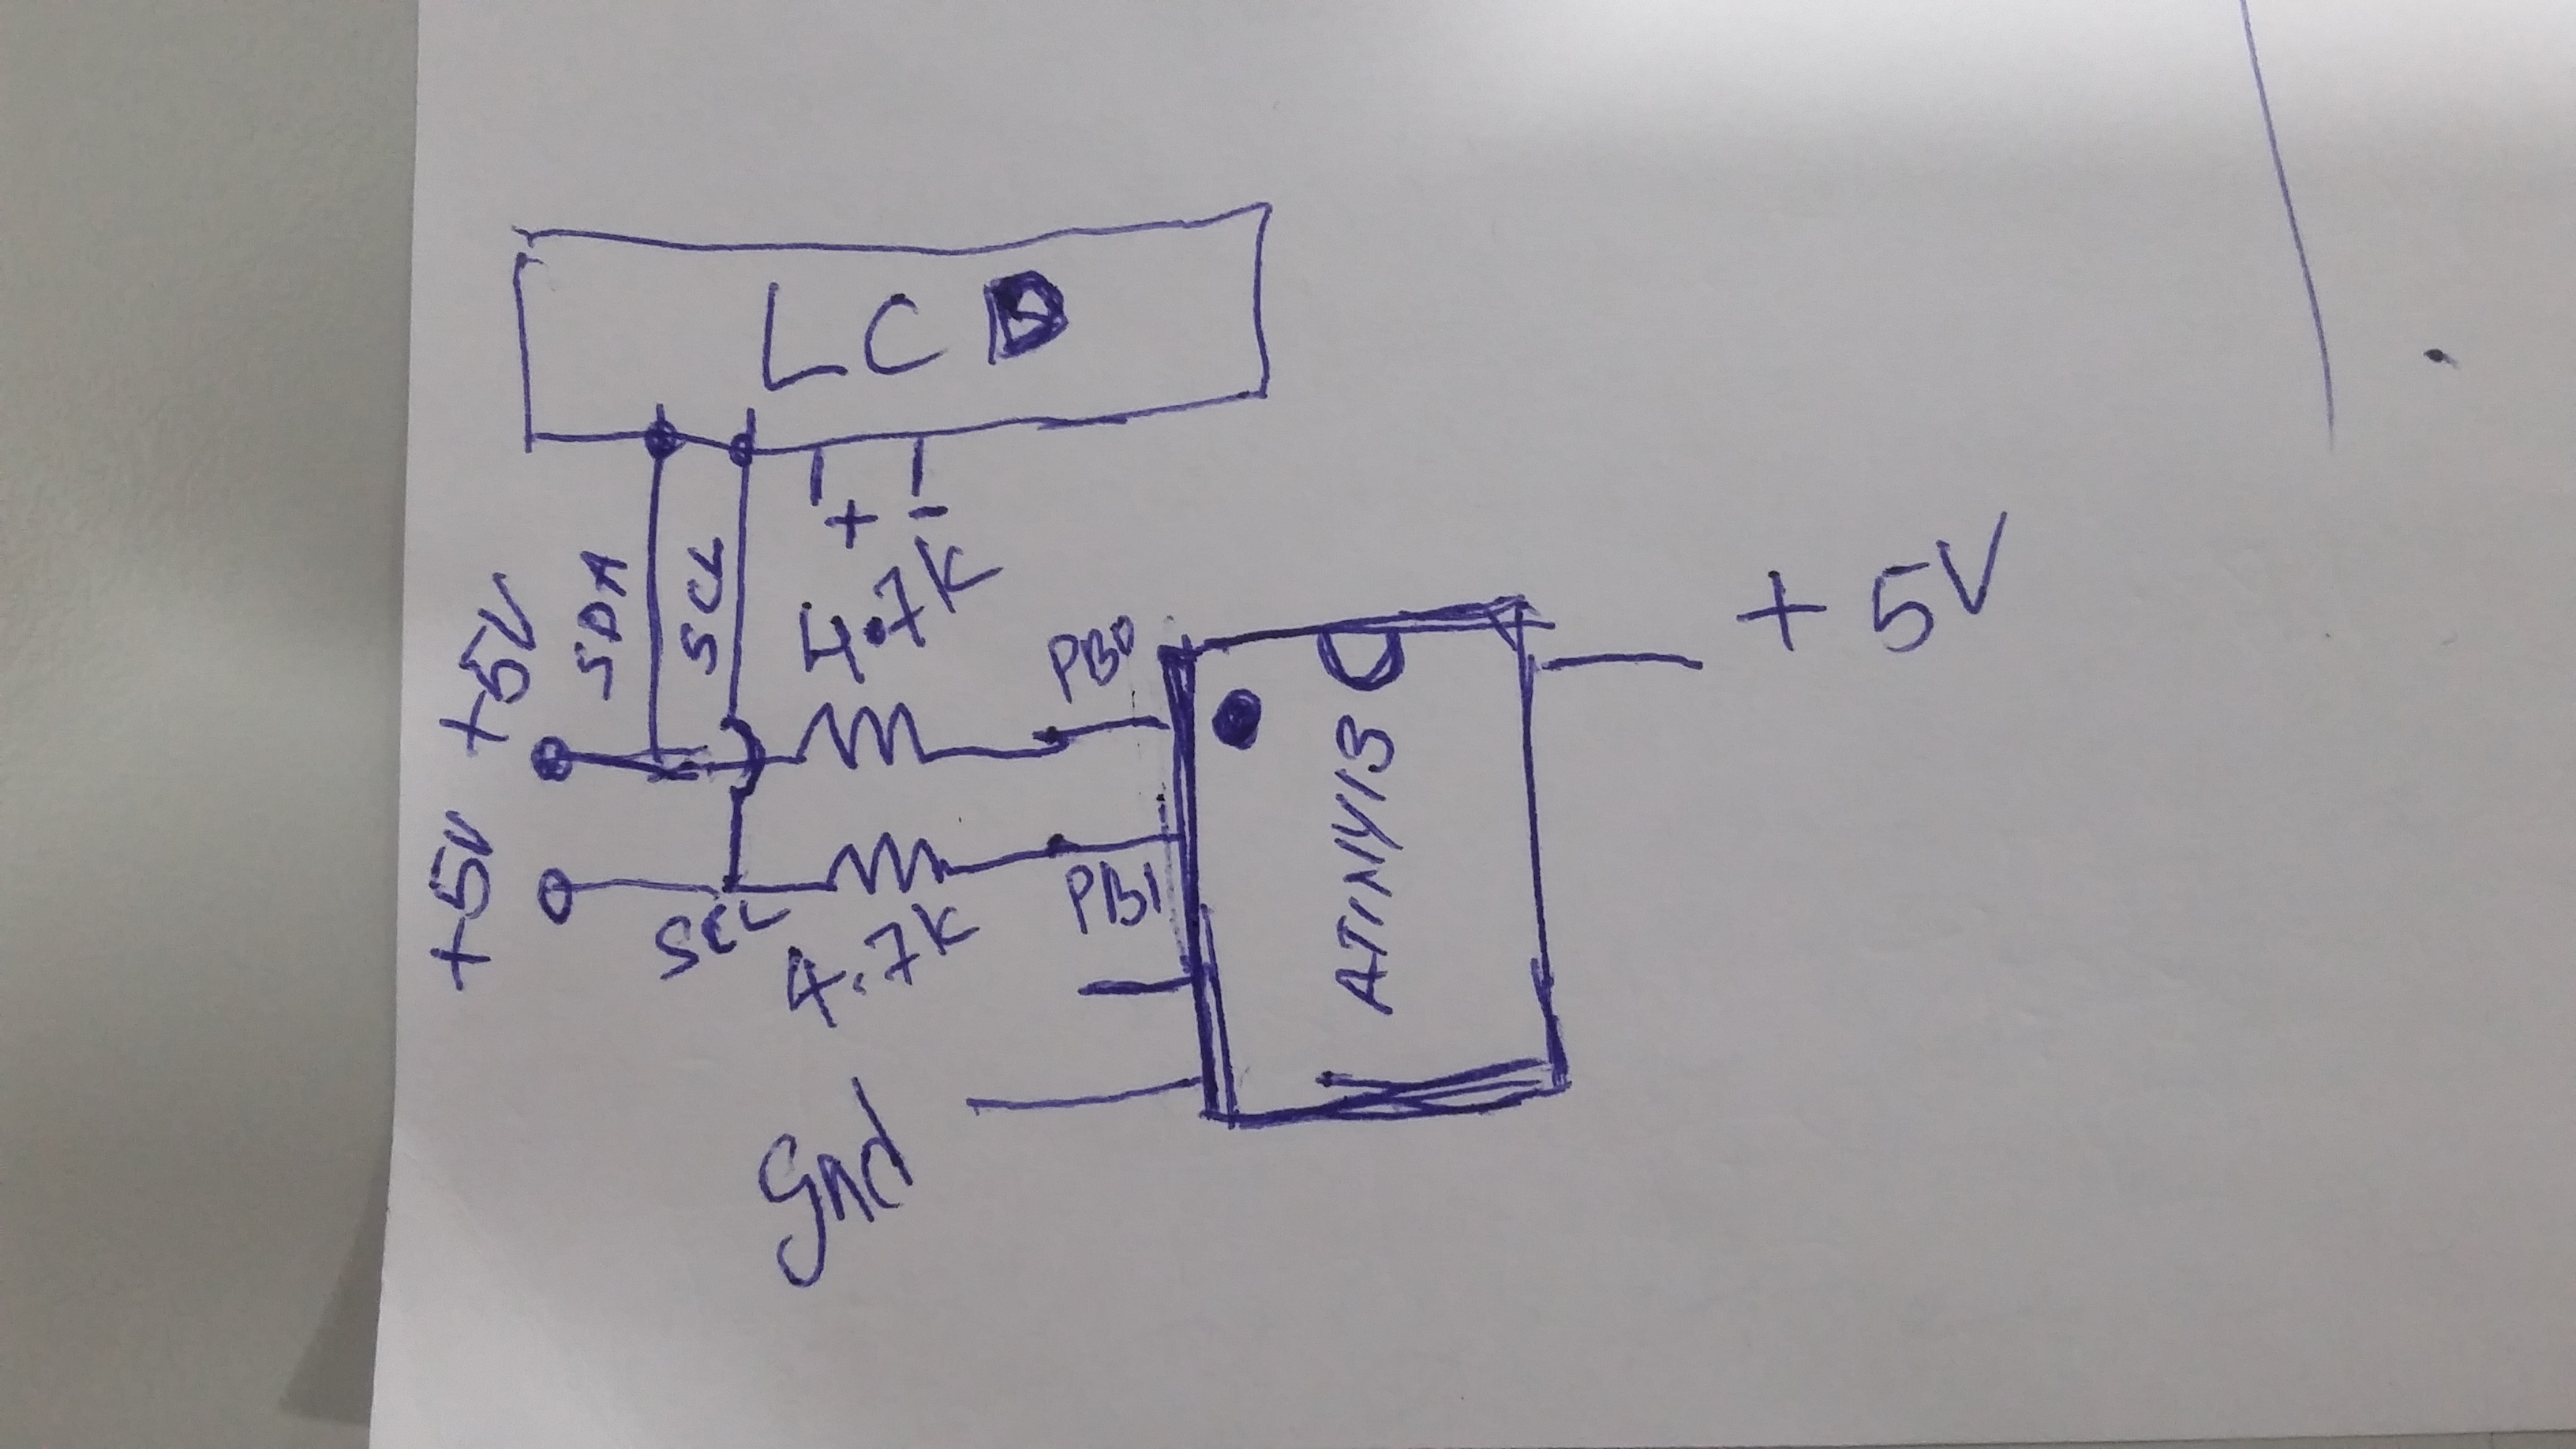 +5V +5V
SDA
SCL
SCL
4.7K
4.7K
+
-
LCD
Gnd
PB1
PB0
ATINY13
+5V